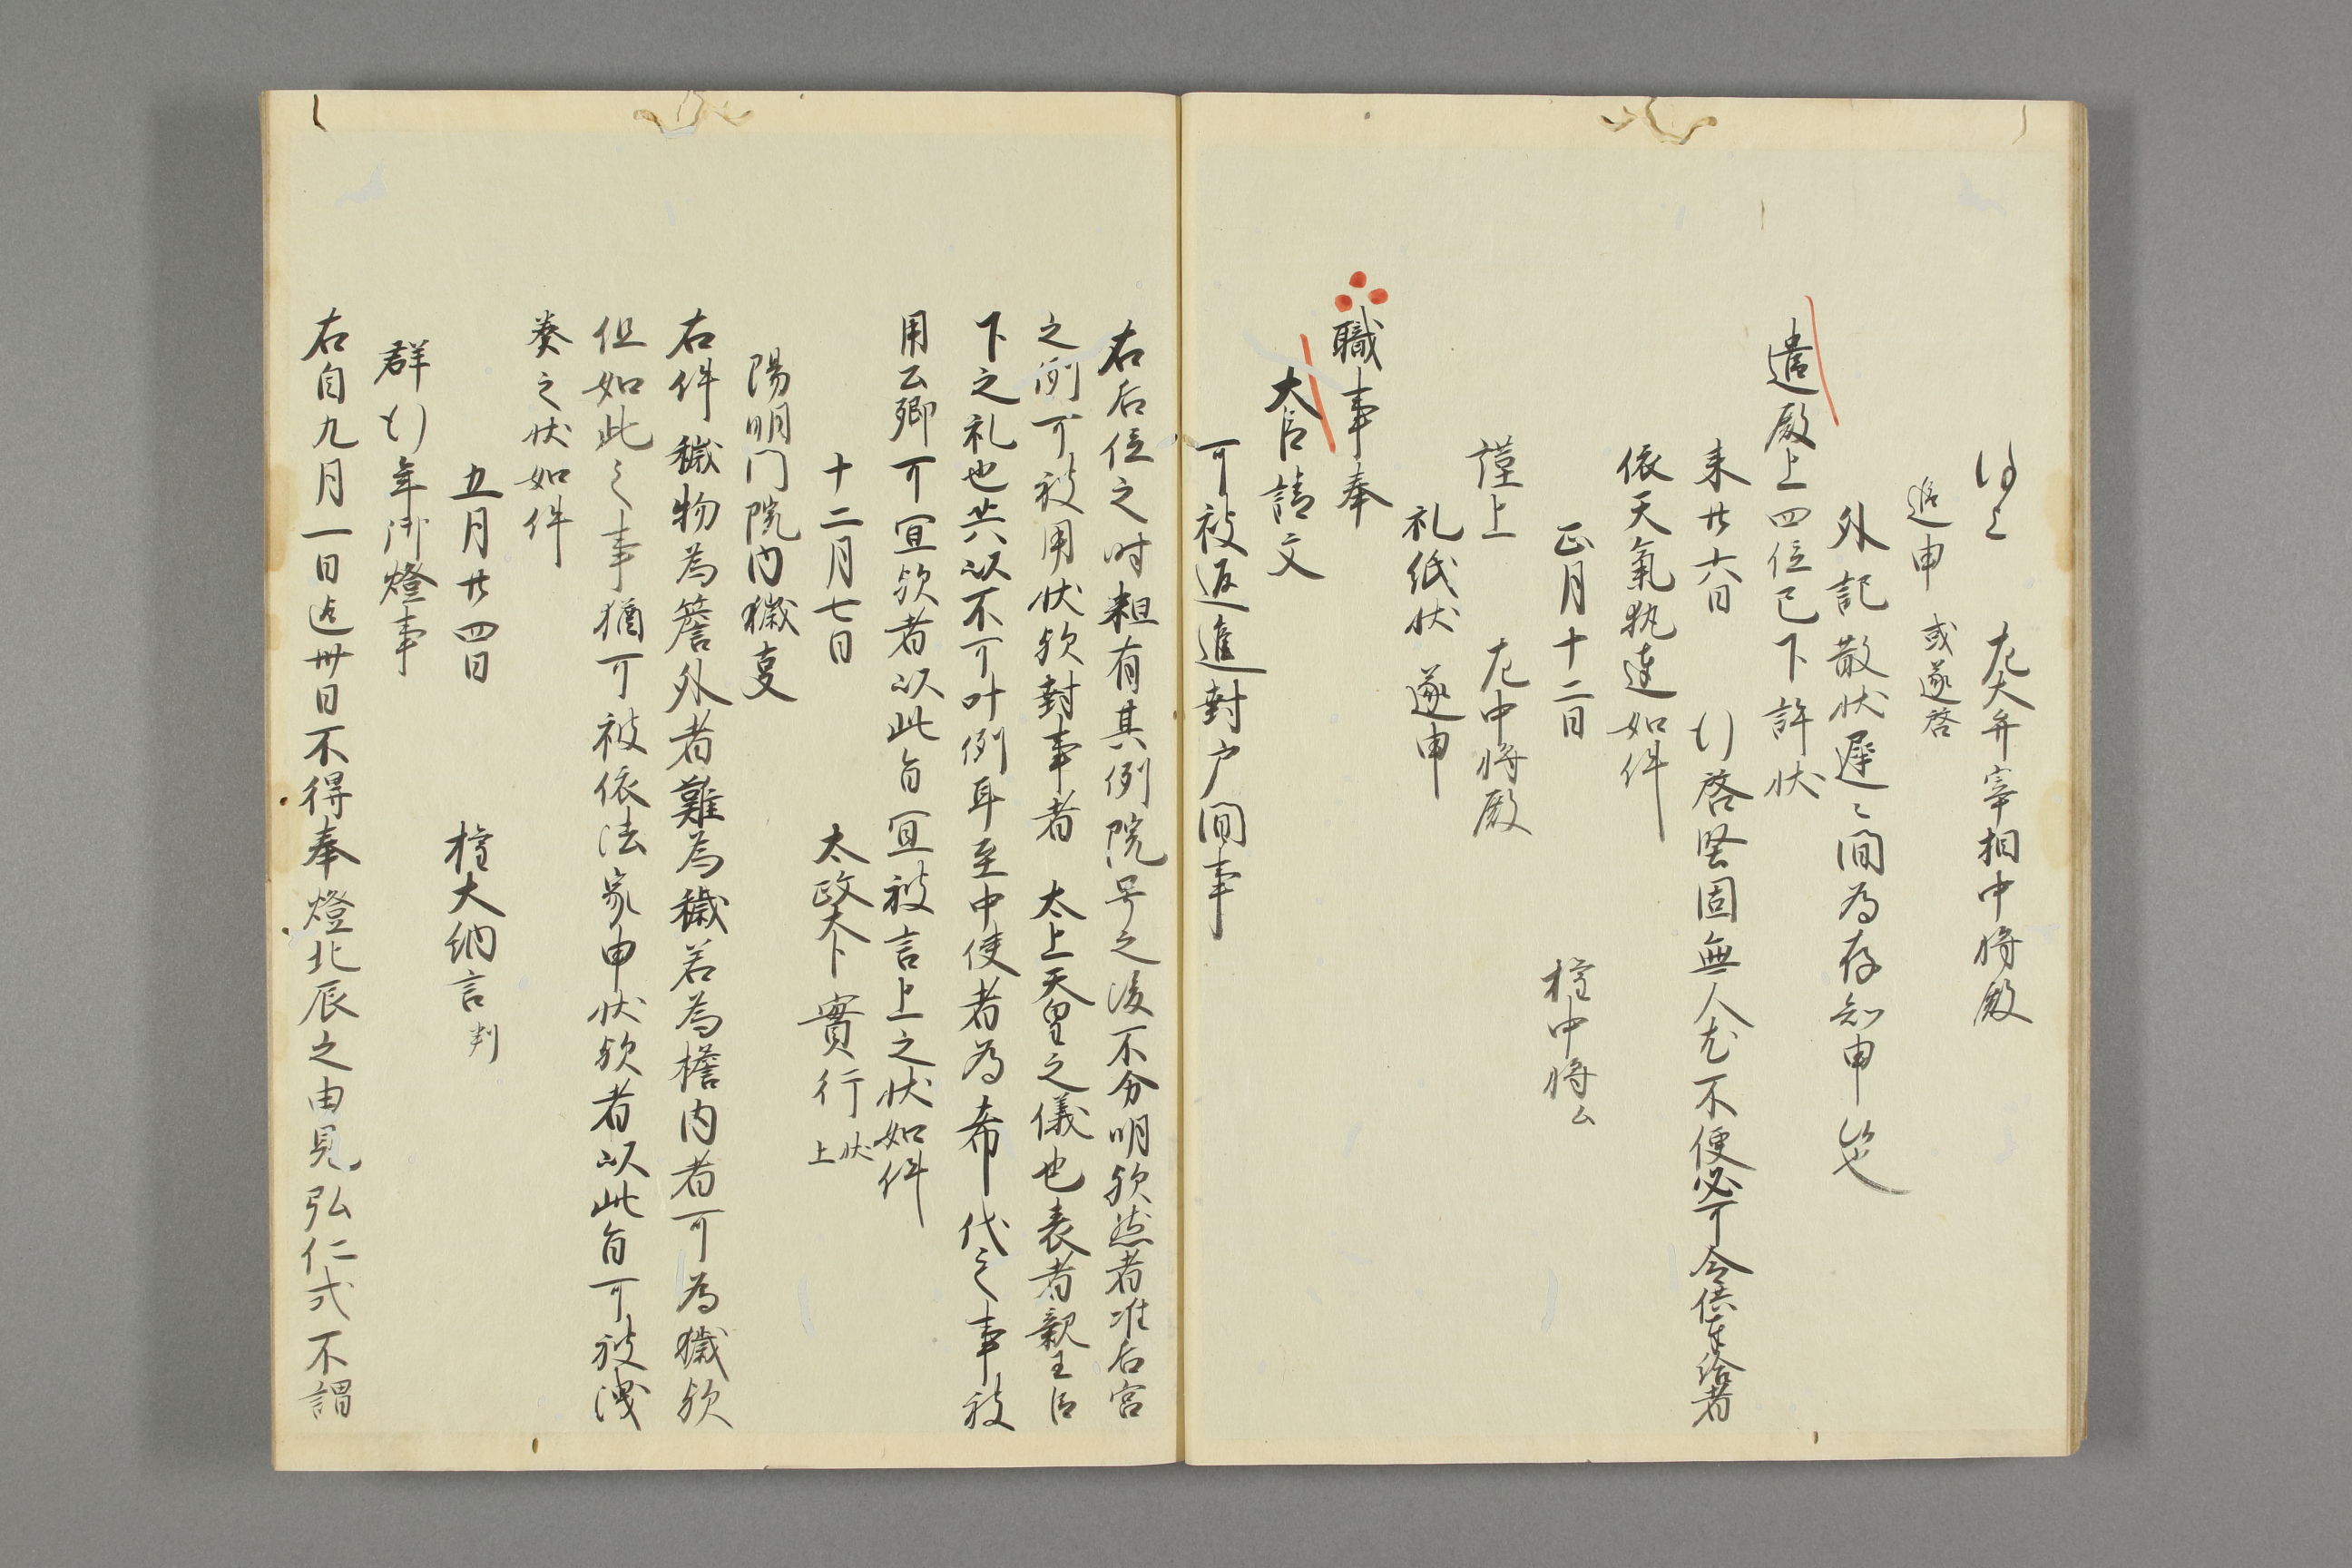 謹上　左大弁宰相中将殿
追申　或遂啓
外記散状遅々間為存知申
遣殿上四位已下許状
来廿六日行啓堅固無人尤不便必可令供奉給者
依天氣執達如件
正月十二日　権中将
謹上　左中将殿
礼紙状　遂申
職事奉
大臣請文
可被返進封戸間事
右后位之時粗有其例院号之後不分明欤然者准后宮
之例可被用状欤封事者　太上天皇之儀也表者親王臣
下之礼也共以不可叶例耳至中使者為希代之事被
用公卿可宜欤者以此旨宜被言上之状如件
十二月七日　太政大臣實行　上状
陽明門院内穢事
右件穢物為簷外者難為穢若為檐内者可為穢欤
但如此之事猶可被依法家申状欤者以此旨可被洩
奏之状如件
五月廿四日　権大納言判
群行年御燈事
右自九月一日迄卅日不得奉燈北辰之由見弘仁式不謂